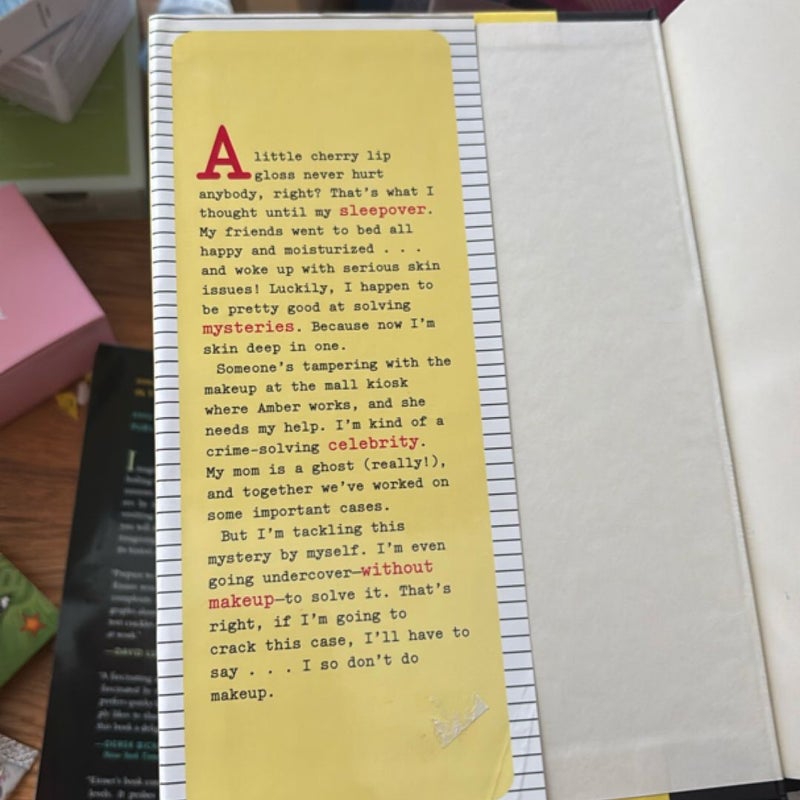 A little cherry lip
gloss never hurt
anybody, right? That's what I
thought until my sleepover.
My friends went to bed all
happy and moisturized . . .
and woke up with serious skin
issues! Luckily, I happen to
be pretty good at solving
mysteries. Because now I'm
skin deep in one.
Someone's tampering with the
makeup at the mall kiosk
where Amber works, and she
needs my help. I'm kind of a
crime-solving celebrity.
My mom is a ghost (really!),
and together we've worked on
some important cases.
But I'm tackling this
mystery by myself. I'm even
going undercover—without
makeup—to solve it. That's
right, if I'm going to
crack this case, I'll have to
say . . . I so don't do
makeup.
—DAVID
"A fascinating
—DEREK
New York Times